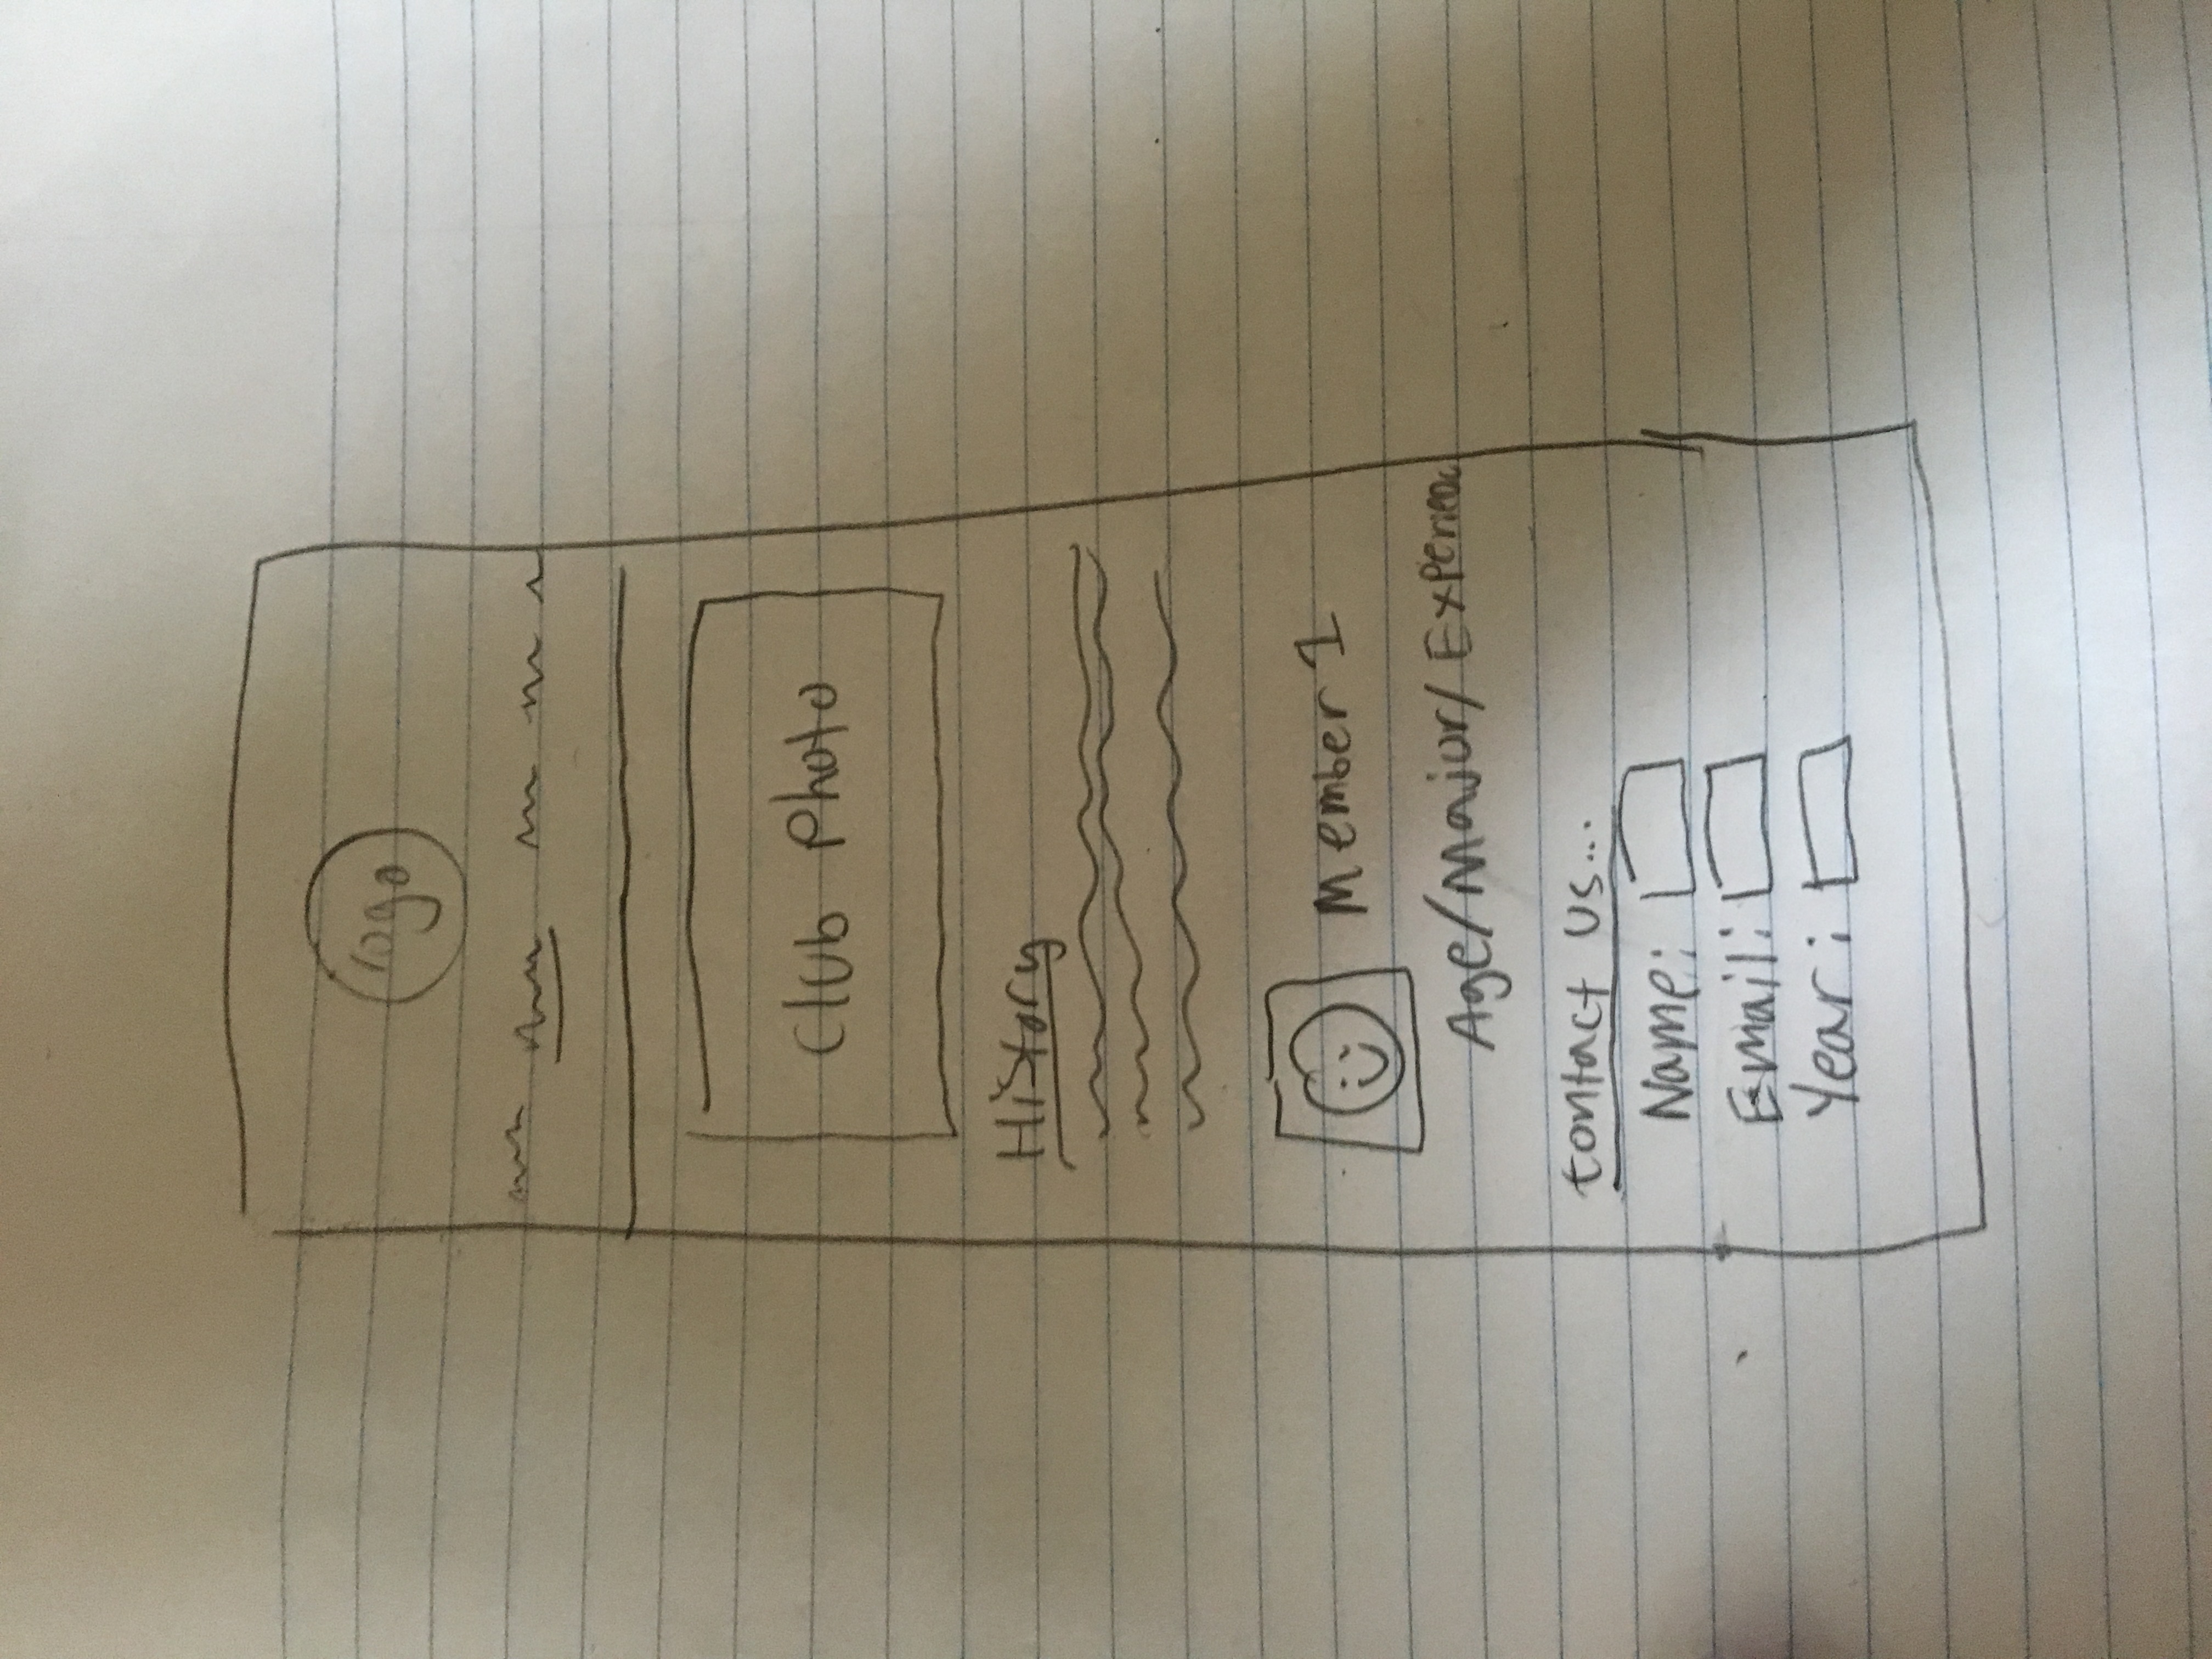 logo
Club Photo
History
Member 1
Age/Major/
contact us...
Name:
Email:
Year: